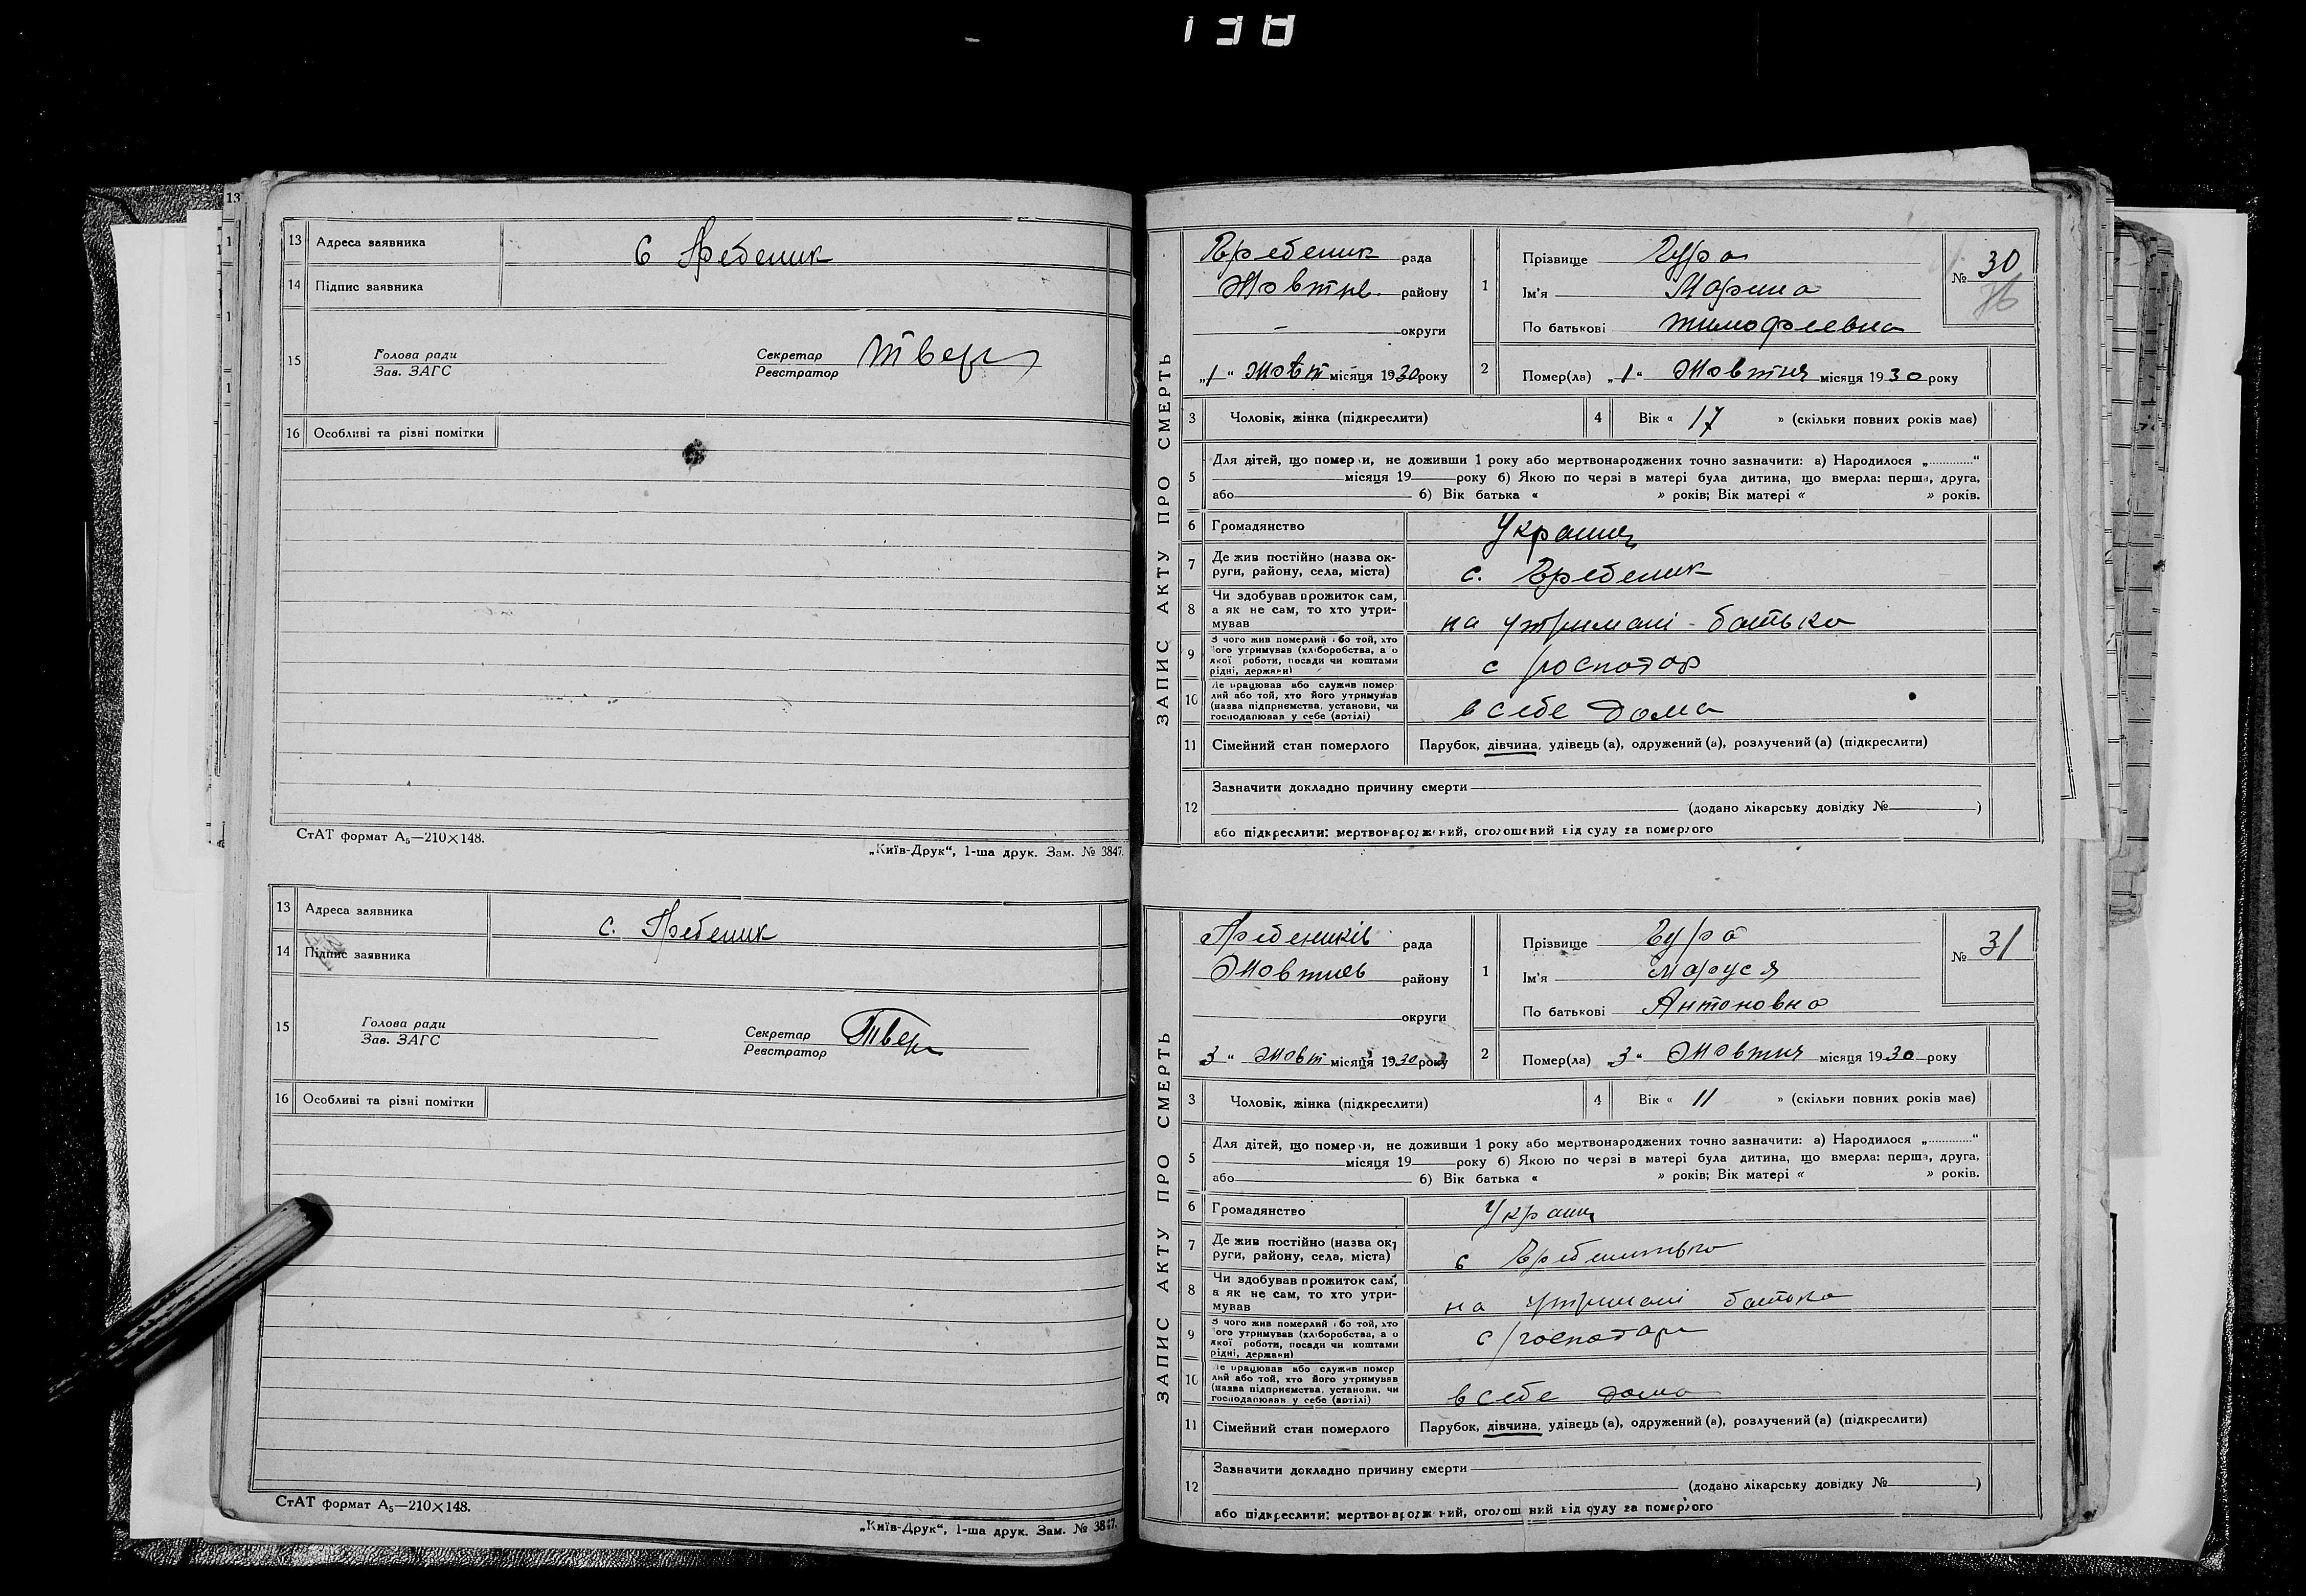 138
13 Адреса заявника С Гребеник
14 Підпис заявника
15 Голова ради Секретар Твер
Зав. ЗАГС Реєстратор
16 Особливі та різні помітки
СтАТ формат А5—210×148.
„Київ-Друк“, 1-ша друк. Зам. № 3847.
13 Адреса заявника с. Гребеник
14 Підпис заявника
15 Голова ради Секретар Твер
Зав. ЗАГС Реєстратор
16 Особливі та різні помітки
СтАТ формат А5—210×148.
„Київ-Друк“, 1-ша друк. Зам. № 3847.
ЗАПИС АКТУ ПРО СМЕРТЬ
Гребеник рада
Жовтне. району
— округи
„1“ Жовт місяця 1930 року
1 Прізвище Гура
Ім'я Марина
По батькові тимофеевна
№ 30
2 Помер(ла) „1“ Жовтня місяця 1930 року
3 Чоловік, жінка (підкреслити) 4 Вік « 17 » (скільки повних років має)
5 Для дітей, що померли, не доживши 1 року або мертвонароджених точно зазначити: а) Народилося „............“
місяця 19 року б) Якою по черзі в матері була дитина, що вмерла: перша, друга,
або б) Вік батька « » років; Вік матері « » років.
6 Громадянство Украин
7 Де жив постійно (назва ок-
руги, району, села, міста) с. Гребеник
8 Чи здобував прожиток сам,
а як не сам, то хто утри-
мував на утримані батька
9 З чого жив померлий або той, хто
його утримував (хліборобства, або
якої роботи, посади чи коштами
рідні, держави) с господар
10 Де працював або служив помер-
лий або той, хто його утримував
(назва підприємства, установи, чи
господарював у себе (артілі) в себе дома
11 Сімейний стан померлого Парубок, дівчина, удівець (а), одружений (а), розлучений (а) (підкреслити)
12 Зазначити докладно причину смерти
(додано лікарську довідку № )
або підкреслити: мертвонароджений, оголошений від суду за померлого
ЗАПИС АКТУ ПРО СМЕРТЬ
Гребеників рада
Жовтнев району
округи
3 “ Жовт місяця 1930 року
1 Прізвище Гура
Ім'я Маруся
По батькові Антоновна
№ 31
2 Помер(ла) „3“ Жовтня місяця 1930 року
3 Чоловік, жінка (підкреслити) 4 Вік « 11 » (скільки повних років має)
5 Для дітей, що померли, не доживши 1 року або мертвонароджених точно зазначити: а) Народилося „............“
місяця 19 року б) Якою по черзі в матері була дитина, що вмерла: перша, друга,
або б) Вік батька « » років; Вік матері « » років.
6 Громадянство Украин
7 Де жив постійно (назва ок-
руги, району, села, міста) с
8 Чи здобував прожиток сам,
а як не сам, то хто утри-
мував на утримані батька
9 З чого жив померлий або той, хто
його утримував (хліборобства, або
якої роботи, посади чи коштами
рідні, держави) с/господари
10 Де працював або служив помер-
лий або той, хто його утримував
(назва підприємства, установи, чи
господарював у себе (артілі) в себе дома
11 Сімейний стан померлого Парубок, дівчина, удівець (а), одружений (а), розлучений (а) (підкреслити)
12 Зазначити докладно причину смерти
(додано лікарську довідку № )
або підкреслити: мертвонароджений, оголошений від суду за померлого